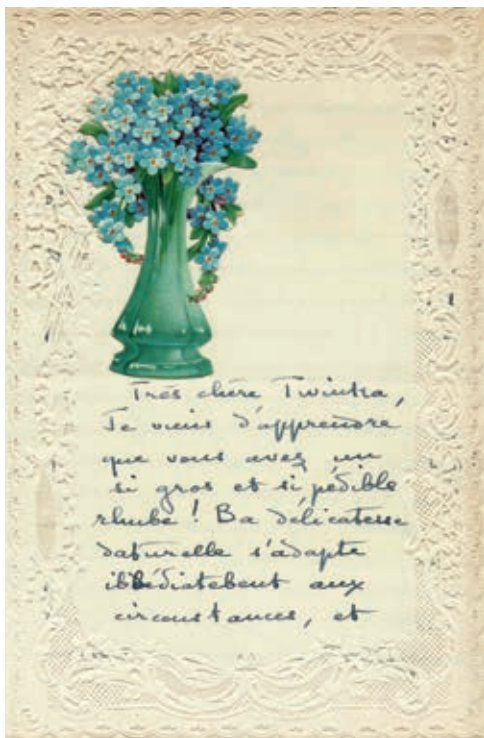 Très chère Twinka,
Je viens d'apprendre
que vous avez un
si gros et si pédible
rhube ! Ba délicatesse
daturelle s'adapte
ibbédiatebent aux
circonstances, et